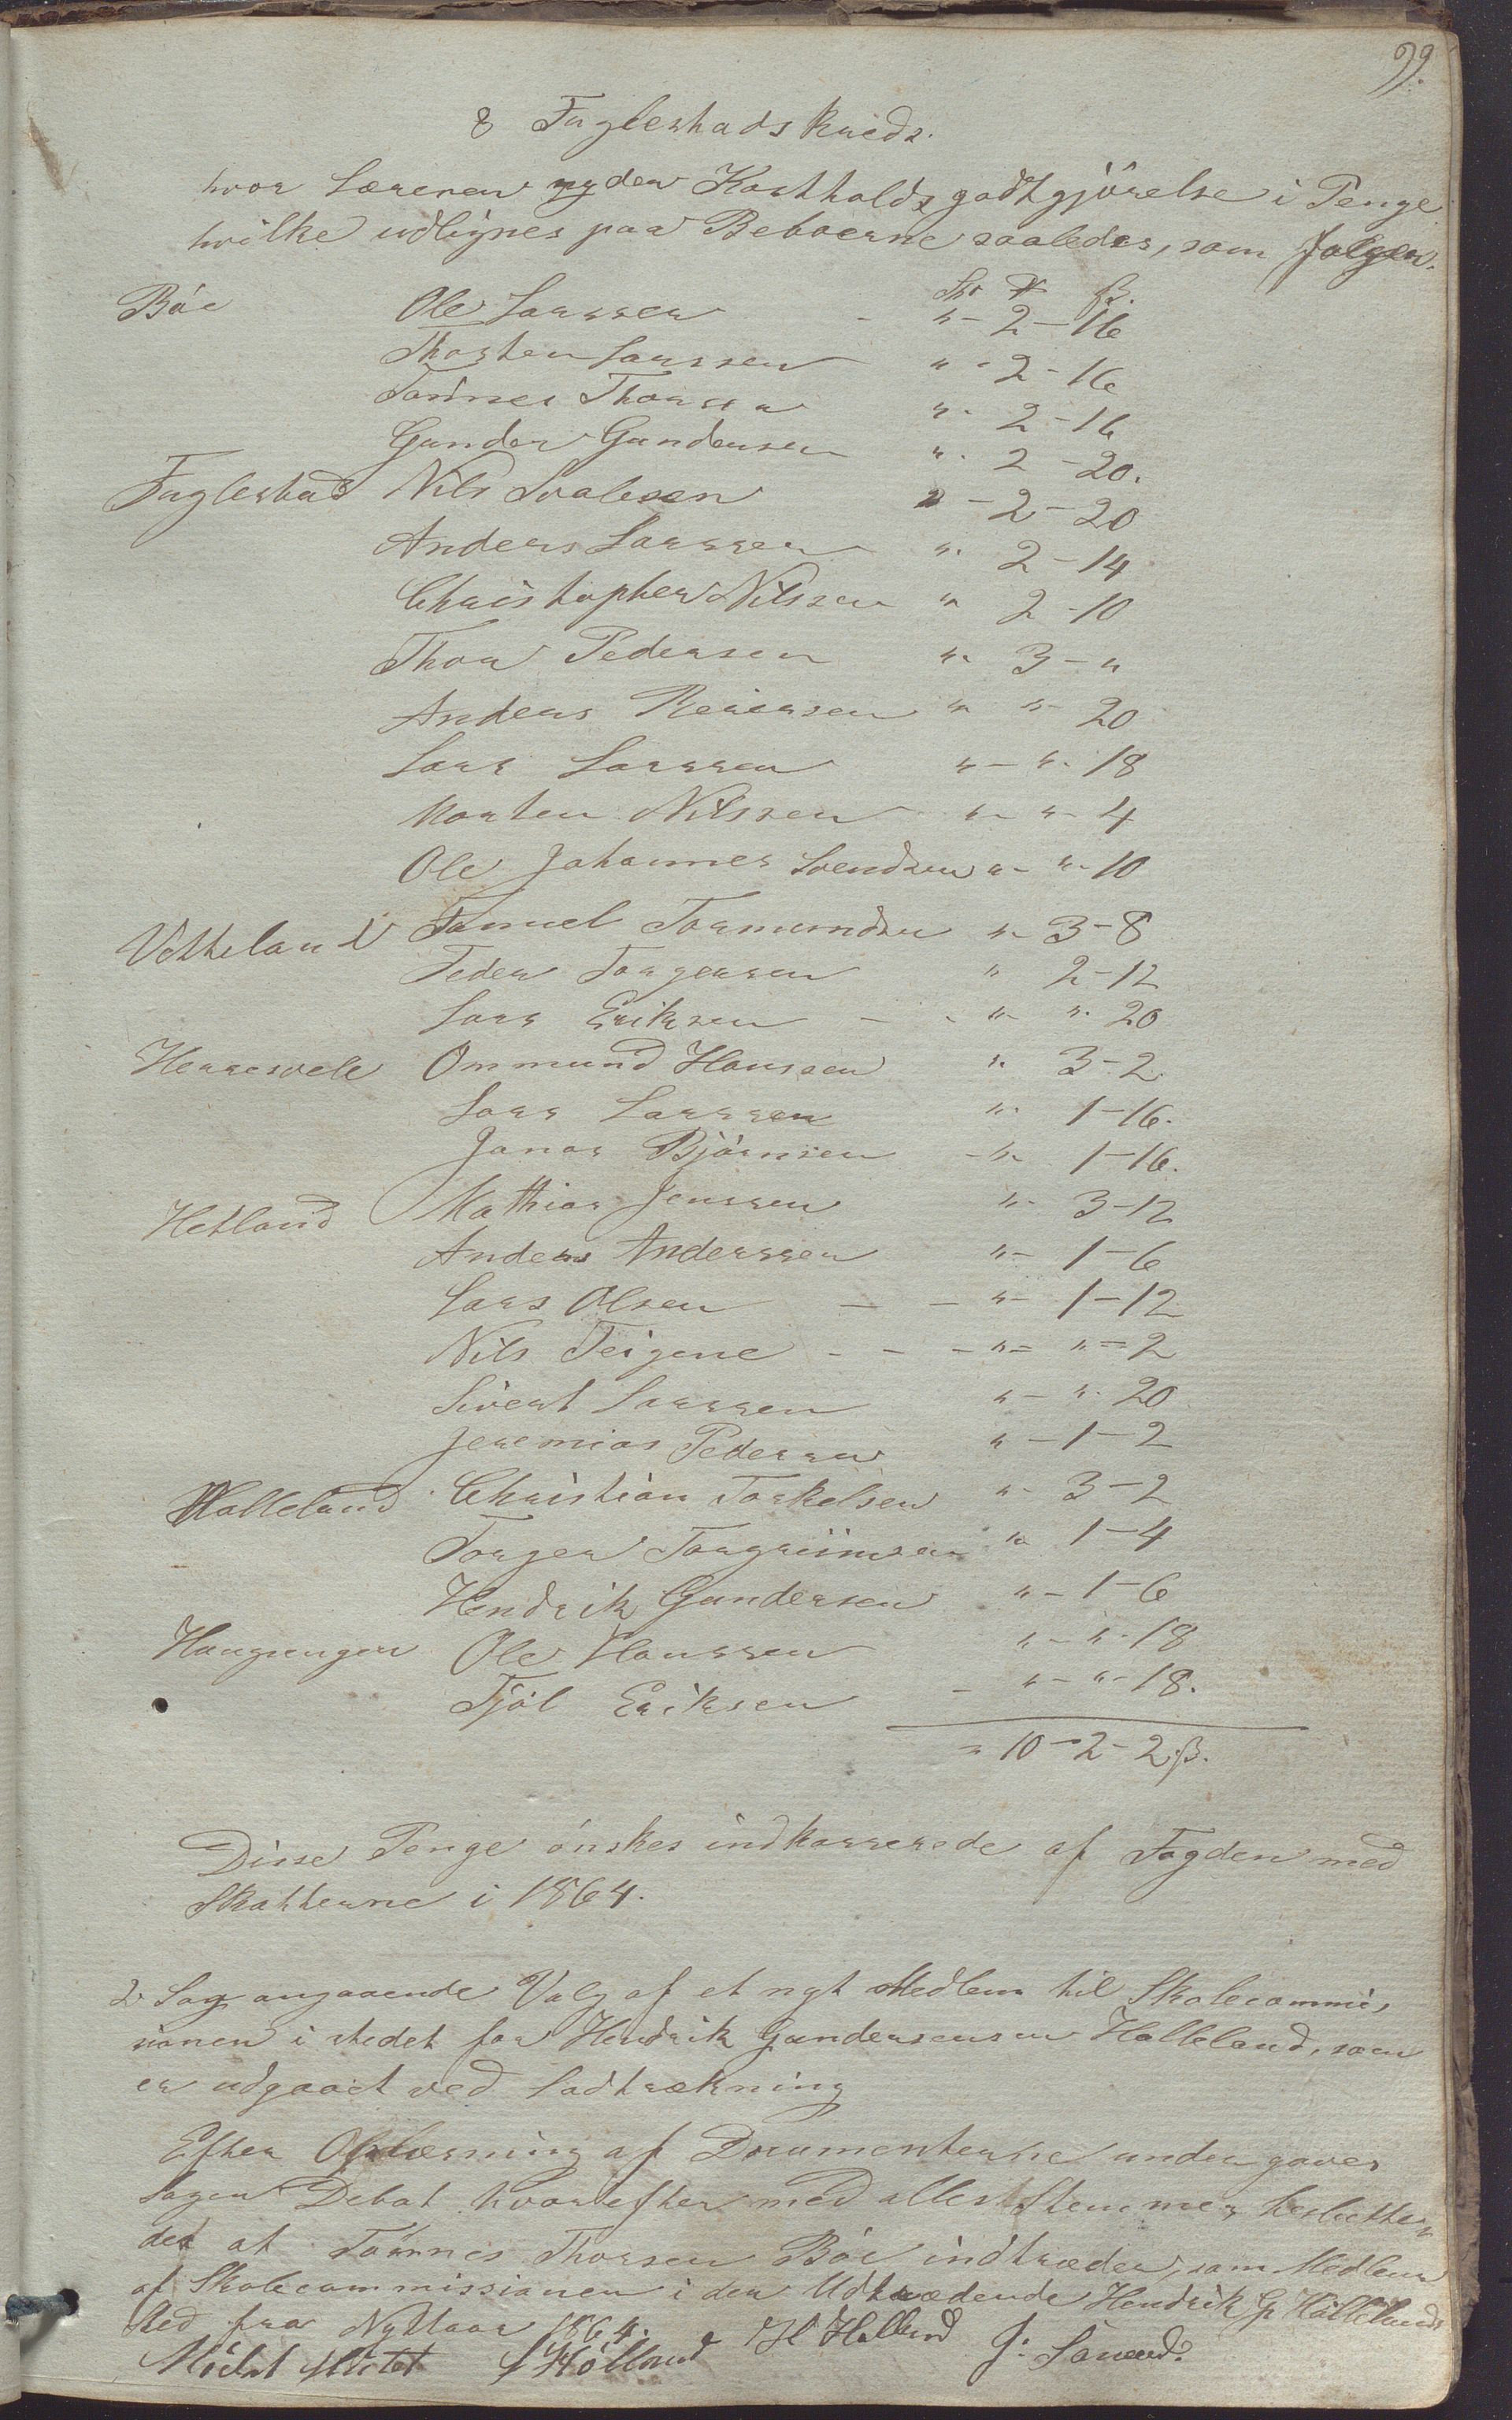 99.
8 Fuglestads Kreds.
hvor Læreren nyder Kostholdsgodtgjörelse i Penge
hvilke udlignes paa Beboerne saaledes, som følger.
ß.
Böe Ole Larssen - " - 2 - 16
Thosten Larssen " - 2 - 16
Tönnes Thorsen " - 2 - 16
Gunder Gundersen " - 2 - 20.
Fuglestad Nils Svalesen " - 2 - 20
Anders Larssen " - 2 - 14
Christopher Nilssen " 2 - 10
Thor Pedersen " 3 - "
Anders Reiersen " " 20
Lars Larssen " - " - 18
Morten Nilssen " - " - 4
Ole Johannes Svendsen " - " - 10
Vetteland Samuel Tormundsen " - 3 - 8
Peder Torgersen " 2 - 12
Lars Eriksen - - " - " - 20
Herresvele Ommund Hanssen " 3 - 2.
Lars Larssen " - 1 - 16.
Jonas Björnsen - " - 1 - 16.
Hetland Mathias Jenssen " - 3 - 12
Anders Anderssen " - 1 - 6
Lars Olsen - - " - 1 - 12
Nils Teigene - - - " = " = 2
Sivert Larssen " - " - 20
Jeremias Pedersen " - 1 - 2
Halleland Christian Torkelsen " - 3 - 2
Torger Torgriimsen " 1 - 4
Hendrik Gundersen " - 1 - 6
Haugsengen Ole Hanssen " - " - 18
Tjöl Eriksen - " - " - 18.
= 10 - 2 - 2 ß.
Disse Penge önskes indkasserede af Fogden med
Skatterne i 1864.
2 Sag angaaende Valg af et nyt Medlem til Skolecommis,
sionen i stedet for Hendrik Gundersensen Halleland, som
er udgaaet ved Lodtrækning
Efter Oplæsning af Documenterne undergaves
Sagen Debat hvorefter med alles Stemmer besluttes
det at Tönnes Thorsen Böe indtræder, som Medlem
af Skolecommissionen i den Udtrædende Hendrik G. Hallelands
Sted fra Nyttaar 1864.
Mödet sluttet H Holland